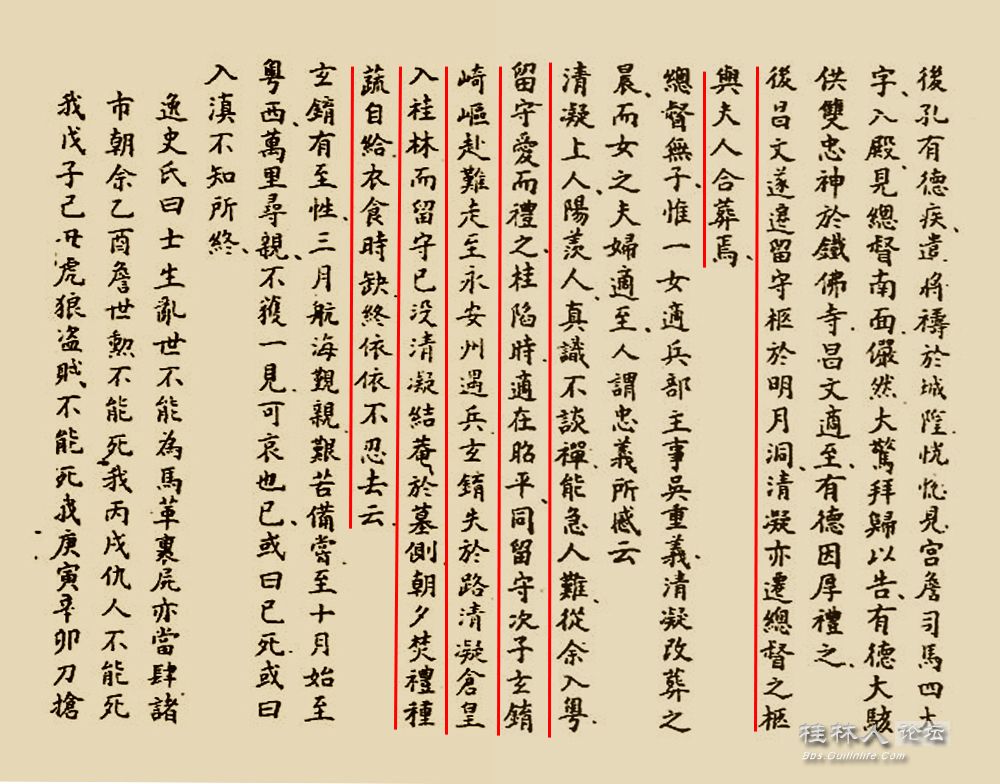 後孔有德疾遣將禱於城隍恍惚見宮詹司馬四大
字入殿見總督南面儼然大驚拜歸以告有德大駭
供雙忠神於鐵佛寺昌文適至有德因厚禮之
後昌文遂遷留守柩於明月洞清凝亦遷總督之柩
與夫人合葬焉
總督無子惟一女適兵部主事吳重義清凝改葬之
晨而女之夫婦適至人謂忠義所感云
清凝上人陽羨人真識不談禪能急人難從余入粵
留守愛而禮之桂陷時適在昭平同留守次子玄錥
崎嶇赴難走至永安州遇兵玄錥失於路清凝倉皇
入桂林而留守已沒清凝結菴於墓側朝夕焚禮種
蔬自給衣食時缺終依依不忍去云
玄錥有至性三月航海覲親艱苦備嘗至十月始至
粵西萬里尋親不獲一見可哀也已或曰已死或曰
入滇不知所終
逸史氏曰士生亂世不能為馬革裹屍亦當肆諸
市朝余乙酉詹世勲不能死我丙戌仇人不能死
我戊子己丑虎狼盜賊不能死我庚寅辛卯刀搶
桂林人论坛
Bbs.Guilinlife.Com